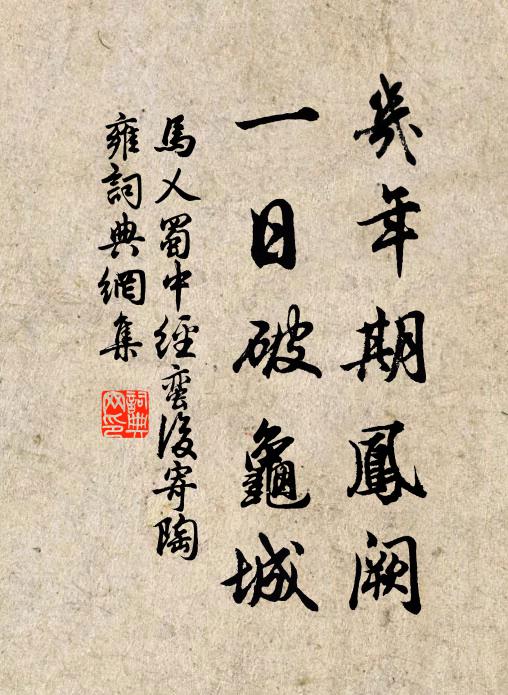 幾年期鳳阙
一日破龜城
馬乂蜀中經蠻後寄陶
雍詞典網集
詞典
网印